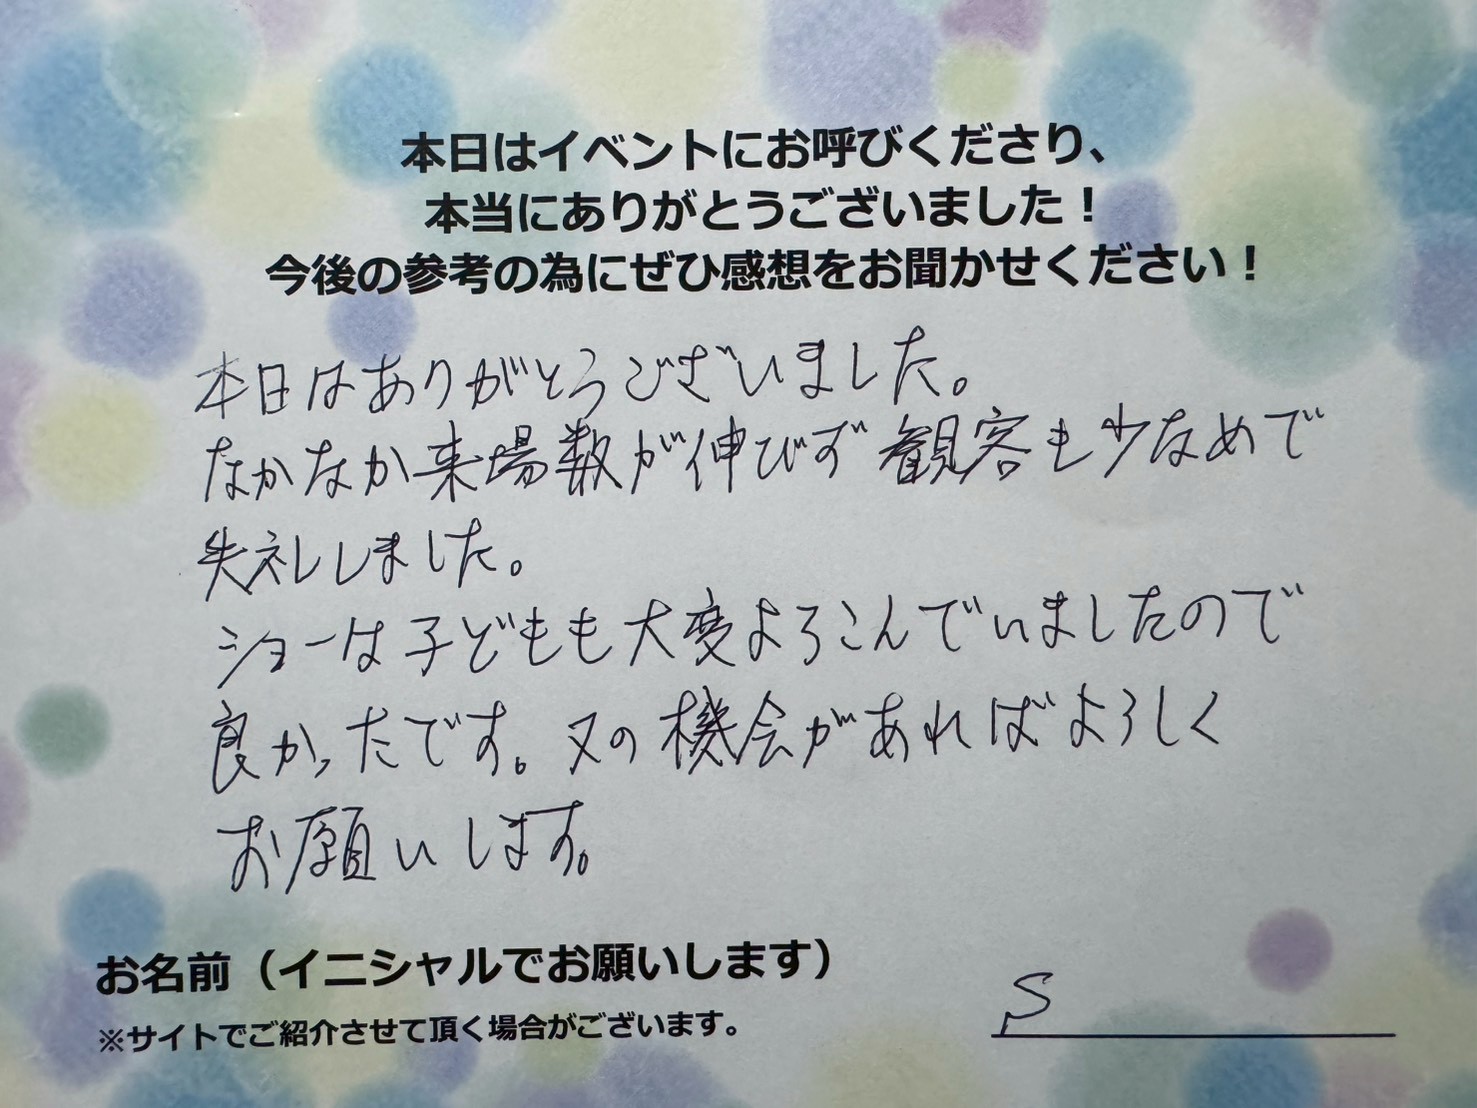 本日はイベントにお呼びくださり、
本当にありがとうございました！
今後の参考の為にぜひ感想をお聞かせください！
本日はありがとうございました。
なかなか来場数が伸びず観客も少なめで
失礼しました。
ショーは子どもも大変よろこんでいましたので
良かったです。又の機会があればよろしく
お願いします。
お名前（イニシャルでお願いします）
※サイトでご紹介させて頂く場合がございます。
S